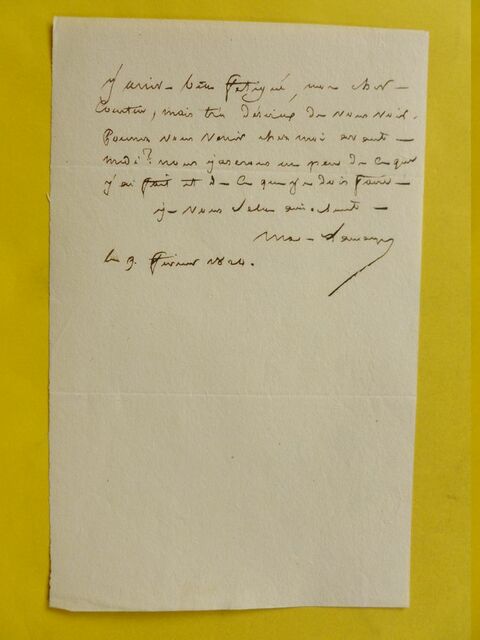 j'arrive bien fatigué, mon cher
, mais très désireux de vous voir.
Pouvez vous venir chez moi avant
midi? nous jaserons un peu de ce que
j'ai fait et de ce que je dois faire
je vous salue
le 9. février 1824.